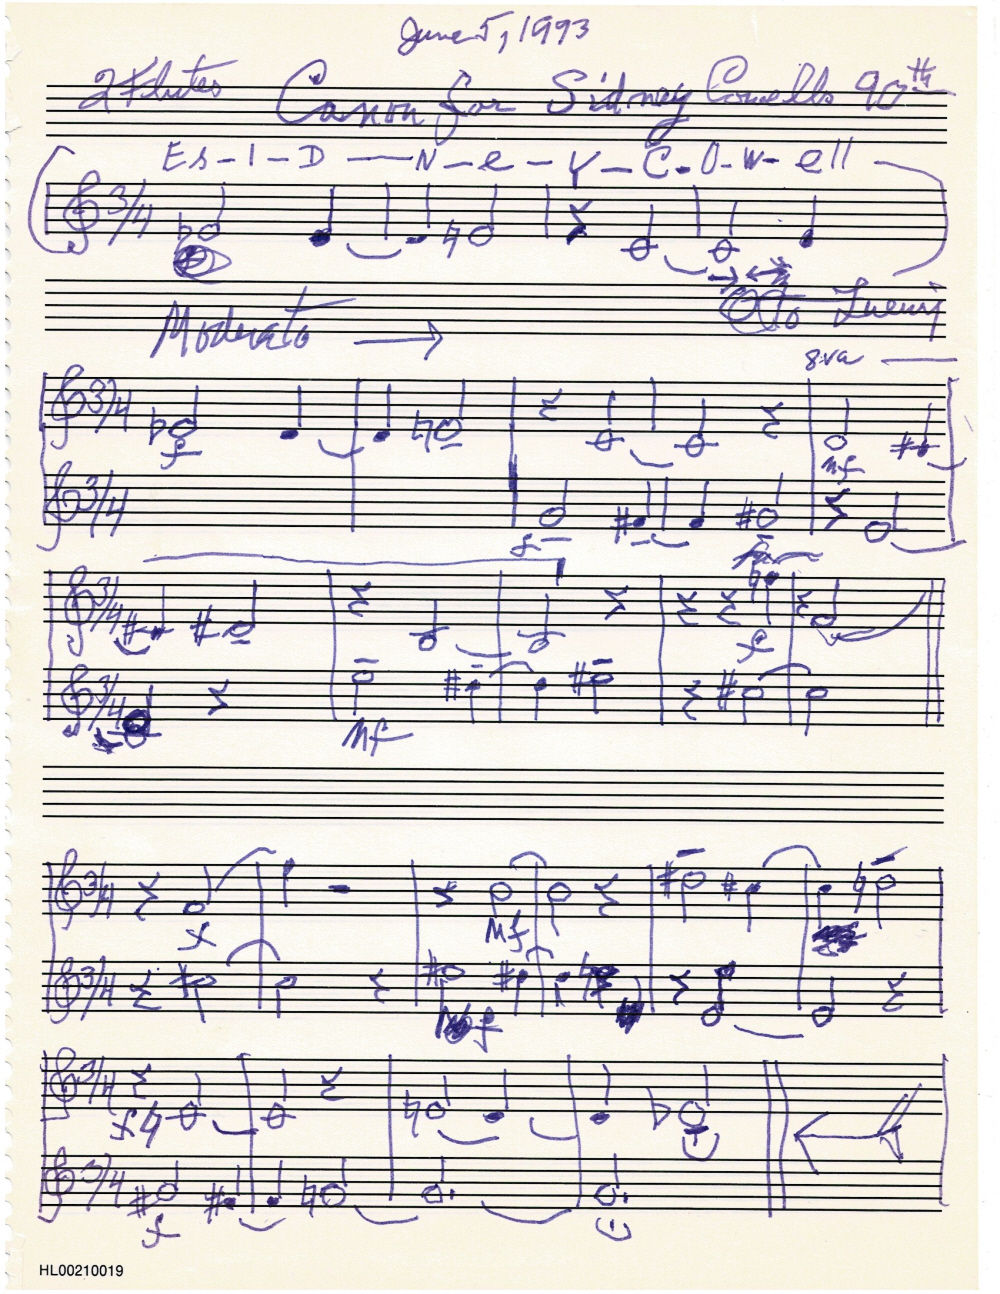 June 5, 1993
2 Flutes Canon for Sidney Cowell's 90th
Es-I-D-N-e-Y-C-O-W-ell
3/4
Otto Luening
Moderato
8va
3/4
f mf
3/4
f
3/4
f
3/4
mf
3/4
f mf
3/4
f
3/4
f
3/4
f
HL00210019